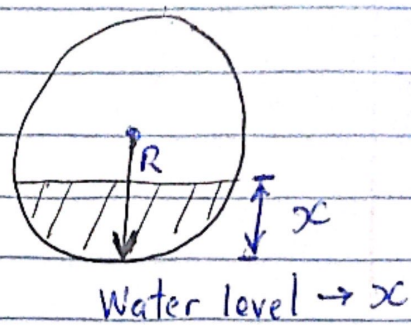 R
x
Water level → x